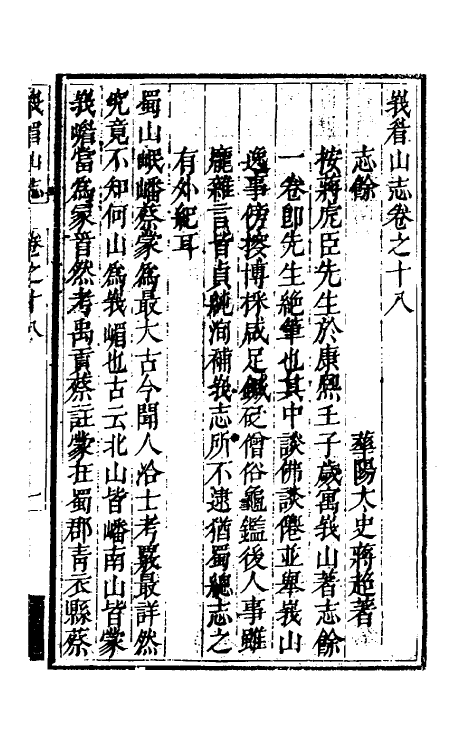 峩眉山志卷之十八
志餘　華陽太史蔣超著
按蔣虎臣先生於康熙壬子歲寓峩山著志餘
一卷卽先生絶筆也其中談佛談僊並舉峩山
逸事傍搜博採咸足鍼砭僧俗龜鑑後人事雖
龐雜言皆貞純洵補峩志所不逮猶蜀總志之
有外紀耳
蜀山岷嶓蔡蒙爲最大古今聞人洽士考覈最詳然
究竟不知何山爲峩嵋也古云北山皆嶓南山皆蒙
峩嵋當爲蒙首然考禹貢蔡註蒙在蜀郡青衣縣蔡
峩眉山志　卷之十八　一